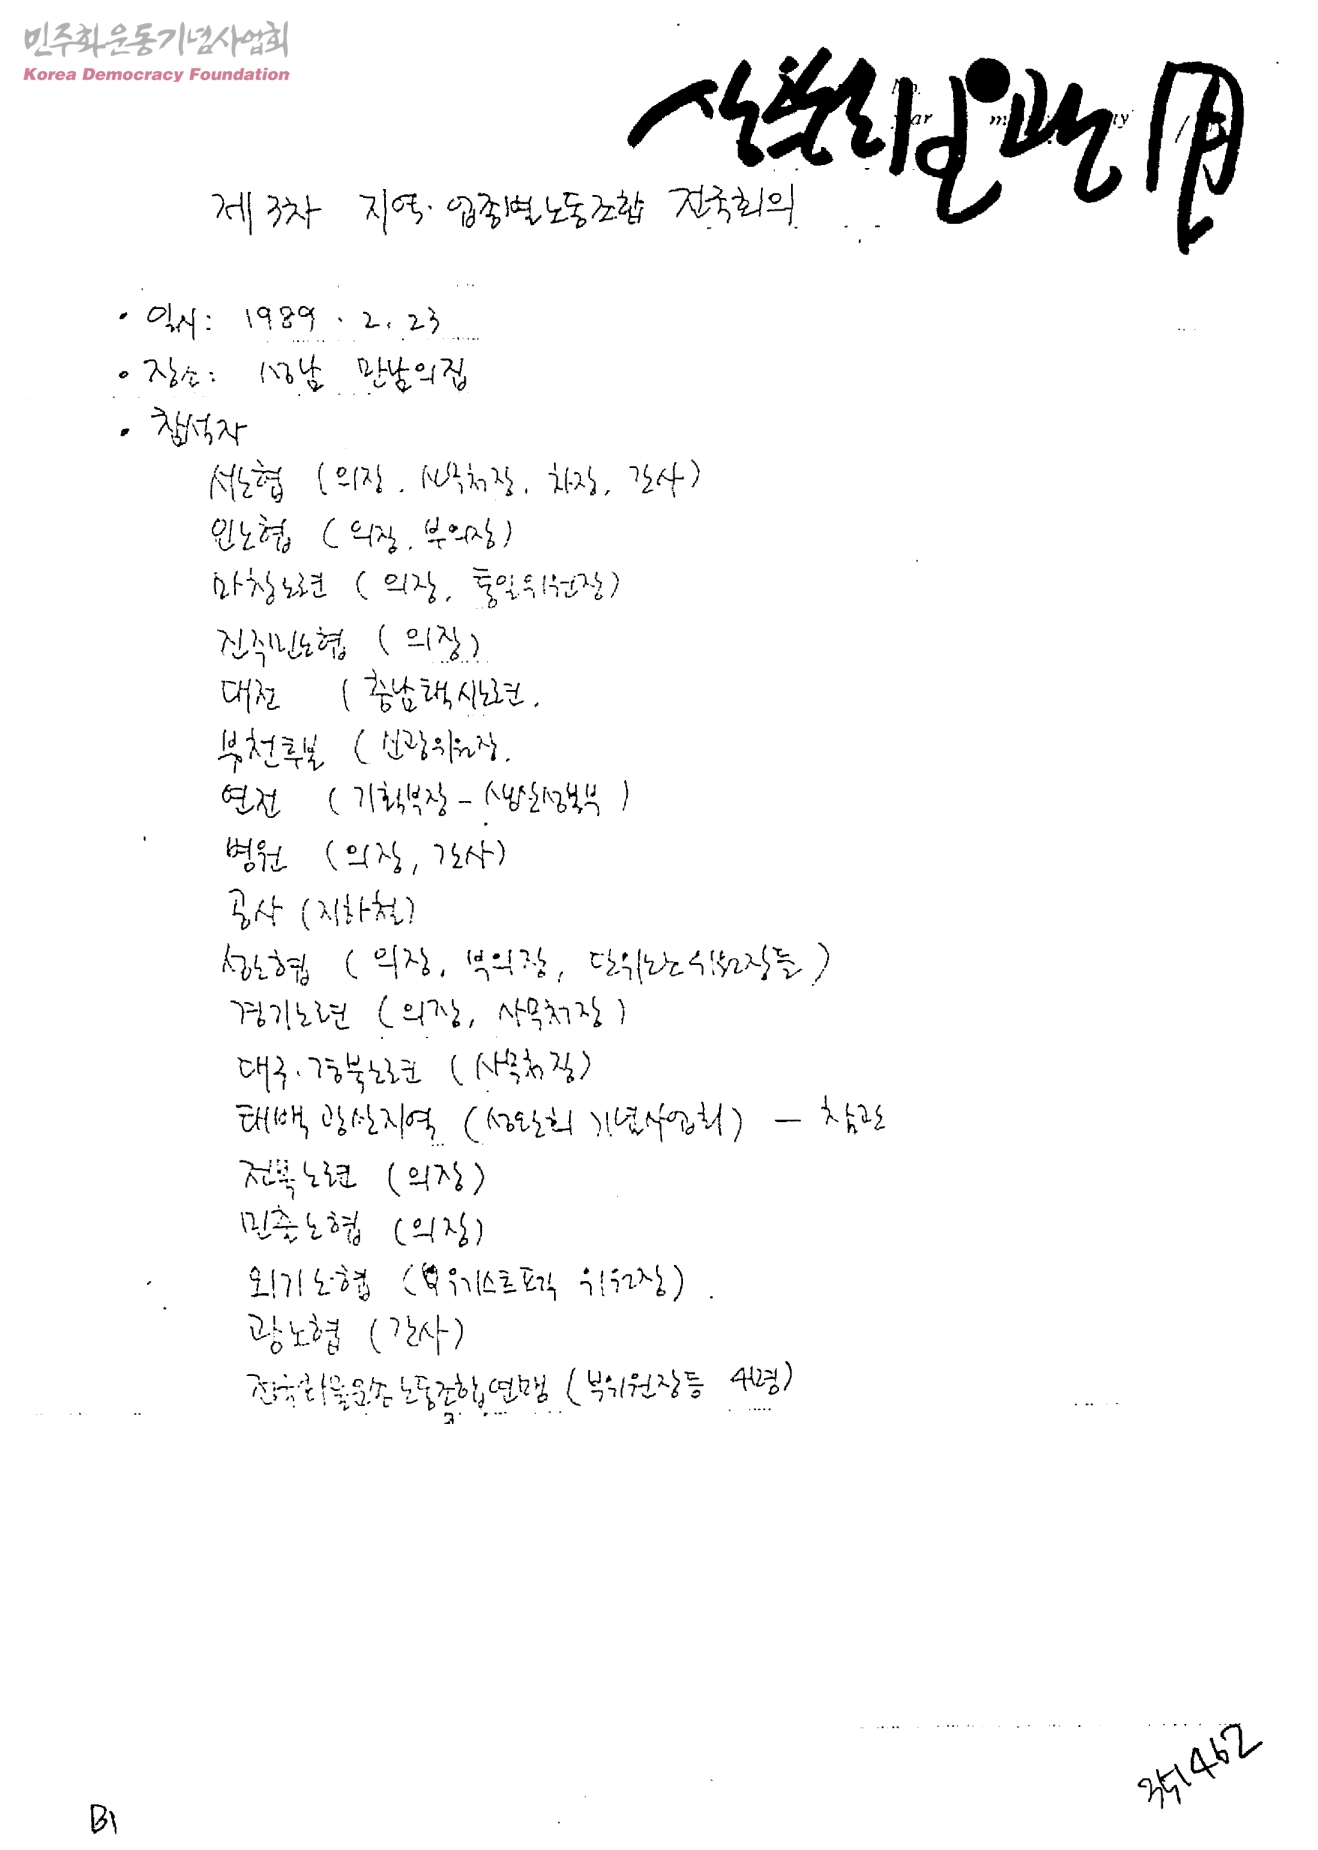 민주화운동기념사업회
Korea Democracy Foundation
제3차 지역·업종별노동조합 전국회의
• 일시: 1989. 2. 23
• 장소: 성남 만남의집
• 참석자
서노협 (의장, 사무처장, 차장, 간사)
인노협 (의장, 부의장)
마창노련 (의장, 통일위원장)
진주민노협 (의장)
대전 (충남택시노련,
부천투본 (신광위원장,
연전 (기획부장 - 생산성본부)
병원 (의장, 간사)
공사 (지하철)
성노협 (의장, 부의장, 단위노조위원장들)
경기노련 (의장, 사무처장)
대구·경북노련 (사무처장)
태백광산지역 (성완희 기념사업회) - 참관
전북노련 (의장)
민출노협 (의장)
외기노협 (위원장).
광노협 (간사)
전국화물운송노동조합연맹 (부위원장등 4명)
351462
B1